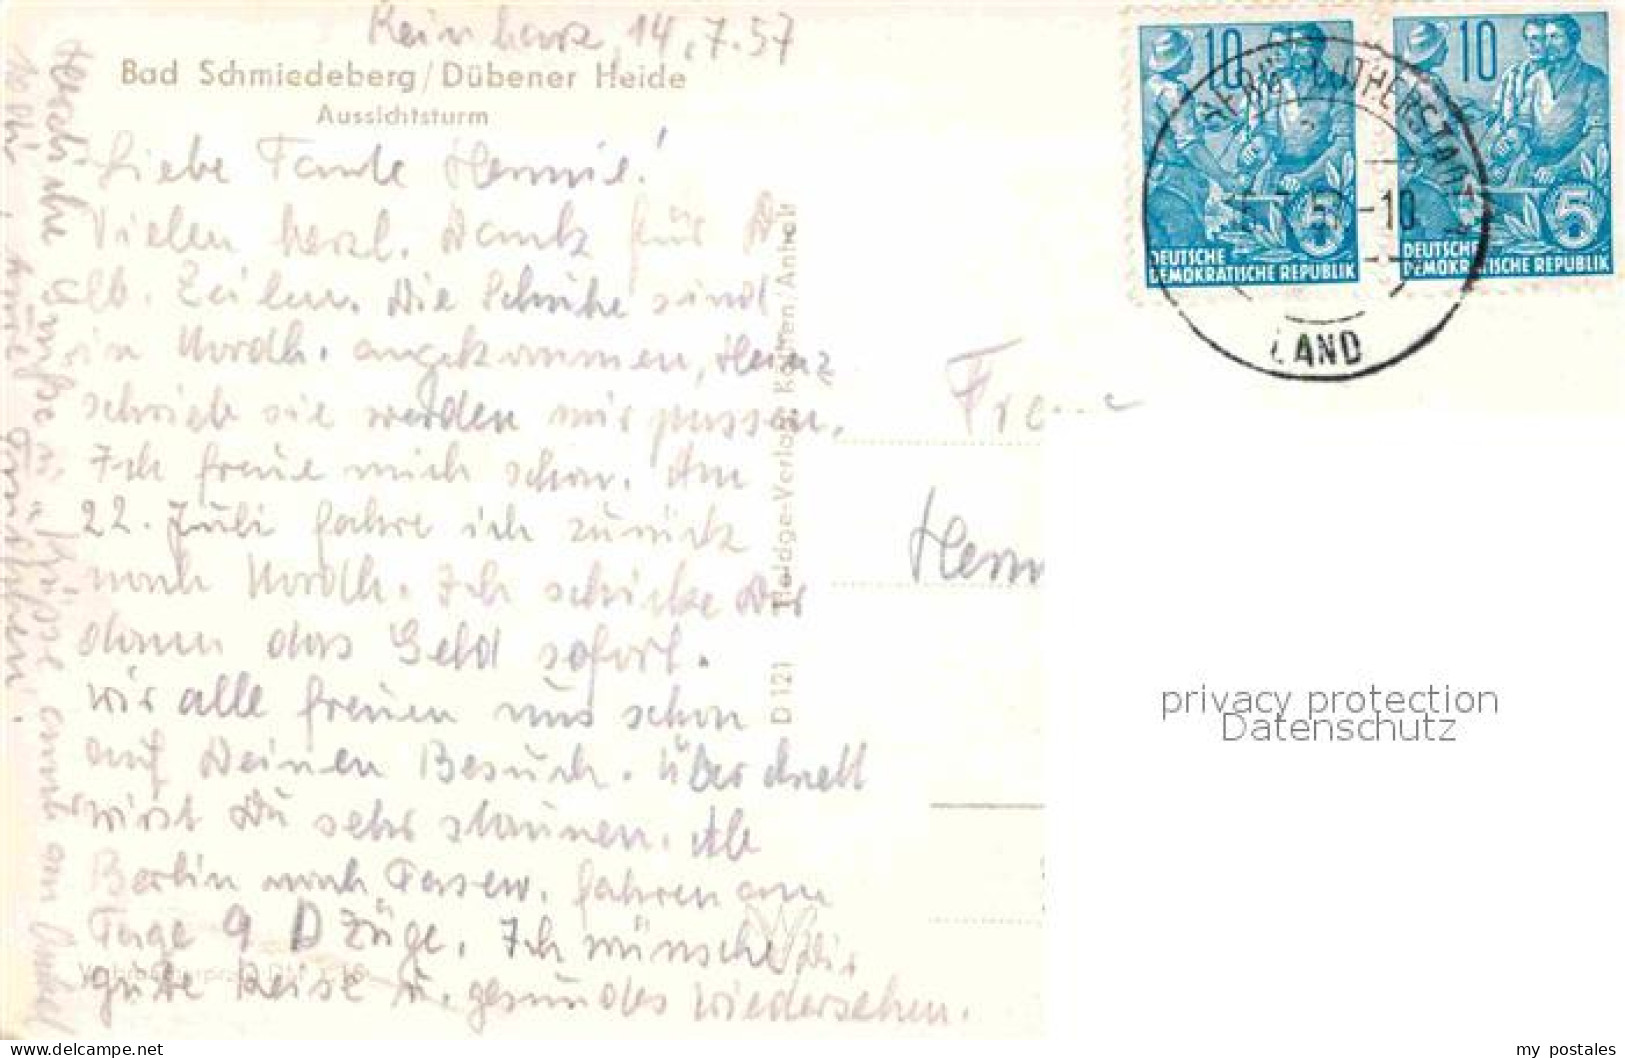 Reinharz, 14.7.57
Bad Schmiedeberg/Dübener Heide
Aussichtsturm
Liebe Tante Hennie!
Vielen herzl. Dank für D.
lb. Zeilen. Die Schuhe sind
in Nordh. angekommen, Heinz
schrieb sie werden mir passen.
Ich freue mich schon. Am
22. Juli fahre ich zurück
nach Nordh. Ich schicke Dir
dann das Geld sofort.
wir alle freuen uns schon
auf Deinen Besuch. Über
wirst Du sehr staunen. Ab
Berlin nach fahren am
Tage 9 D Züge. Ich wünsche Dir
gute Reise u. gesundes Wiedersehen.
Herzliche Grüße u. Küsse auch an Onkel
D 121
Kötthen/Anhalt
10
DEUTSCHE
DEMOKRATISCHE REPUBLIK
5
10
DEUTSCHE
DEMOKRATISCHE REPUBLIK
5
LUTHERSTADT
-10
LAND
Henn
privacy protection
Datenschutz
my postales
www.delcampe.net